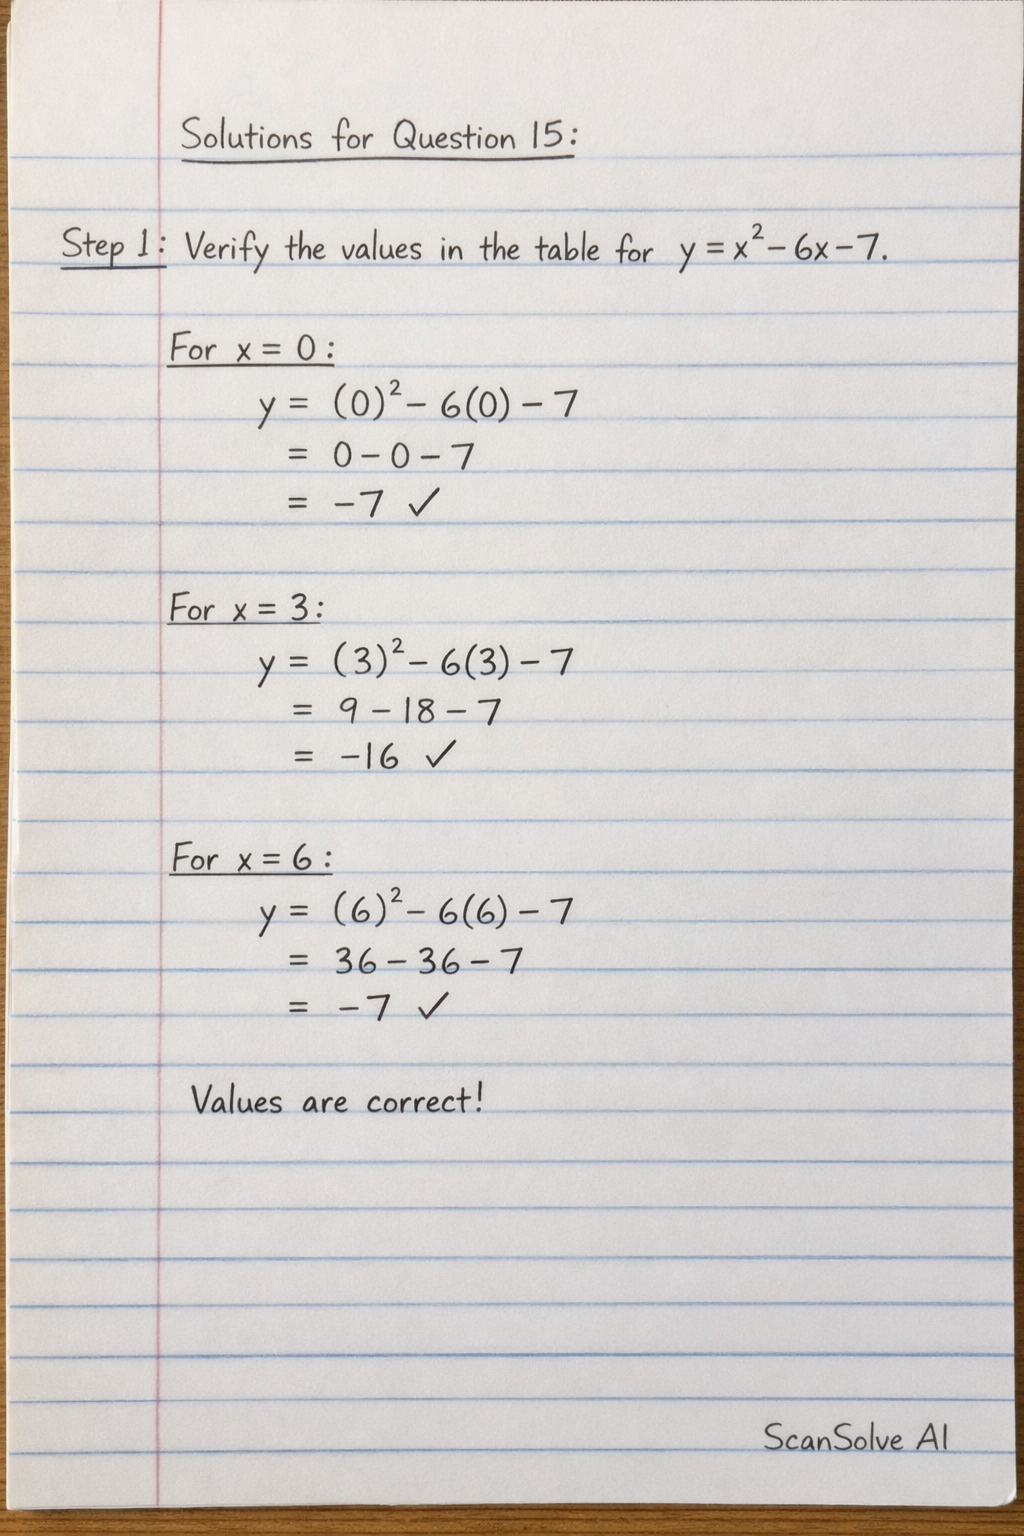 Solutions for Question 15:
Step 1: Verify the values in the table for y = x² - 6x - 7.
For x = 0:
y = (0)² - 6(0) - 7
= 0 - 0 - 7
= -7 ✓
For x = 3:
y = (3)² - 6(3) - 7
= 9 - 18 - 7
= -16 ✓
For x = 6:
y = (6)² - 6(6) - 7
= 36 - 36 - 7
= -7 ✓
Values are correct!
ScanSolve AI